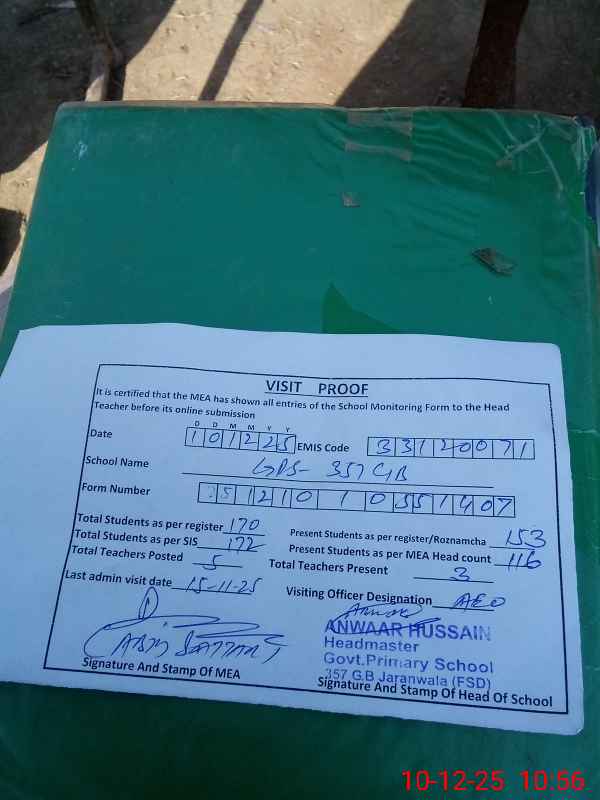 VISIT PROOF
It is certified that the MEA has shown all entries of the School Monitoring Form to the Head
Teacher before its online submission
D D M M Y Y
Date 101225 EMIS Code 33120071
School Name GPS- 357 GB
Form Number
Total Students as per register 170 Present Students as per register/Roznamcha 153
Total Students as per SIS 172 Present Students as per MEA Head count 116
Total Teachers Posted 5 Total Teachers Present 3
Last admin visit date 15-11-25 Visiting Officer Designation AEO
ANWAAR HUSSAIN
Headmaster
Govt.Primary School
357 G.B Jaranwala (FSD)
Signature And Stamp Of MEA Signature And Stamp Of Head Of School
10-12-25 10:56